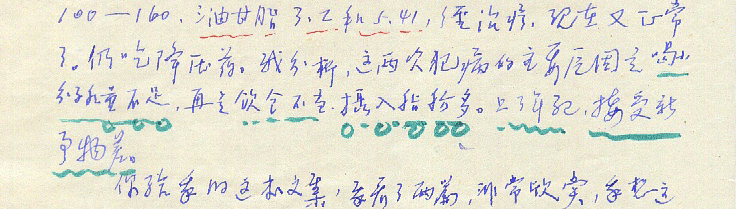 100—160，三油甘脂3.2和5.41，经治疗，现在又正常
了。仍吃降压药。我分析，这两次犯病的主要原因是喝水
量不足，再是饮食不当，摄入脂粉多。上了年纪，接受新
事物差。
你给我的这本文集，我看了两篇，非常欣赏，我想这